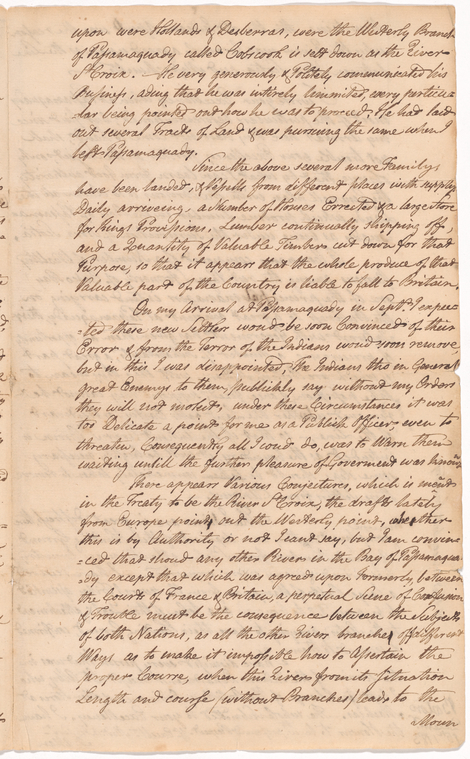 upon were Hollands & Desberras, were the Westerly Branch
of Passamaquady called Cobscook is sett down as the River
St Croix. — He very generously & Politely communicated his
business, ading that he was intirely limmited, every particu
lar being pointed out how he was to proceed; He had laid
out several Tracts of Land & was pursuing the same when I
left Passamaquady.
Since the above several more Familys
have been landed, & Vessells from different places with supplys
Daily arriveing, a Number of Houses Errected & a large Store
for Kings Provisions, Lumber continually shipping off,
and a Quantity of Valuable Timber cut down for that
Purpose, so that it appears that the whole produce of that
Valuable part of the Country is liable to fall to Britain.
On my Arrival at Passamaquady in Septr. I expec
=ted these new Settlers would be soon Convinced of their
Error & from the Terror of the Indians would soon remove,
but in this I was desappointed, the Indians tho in General
great Enemys to them, publickly say without my Orders
they will not molest, under these Circumstances it was
too Delicate a point for me as a Publick Officer even to
threaten, Consequently all I could do, was to Warn them
waiting untill the further pleasure of Goverment was known.
There appears Various Conjectures, which is ment
in the Treaty to be the River St Croix, the drafts lately
from Europe points out the Westerly point, whether
this is by Authority or not I cant say, but I am convin
=ced that shoud any other Rivers in the Bay of Passamaqua
=dy except that which was agreed upon formerly between
the Courts of France & Britain, a perpetual Scene of Confusion
& Trouble must be the consequence between the Subjects
of both Nations, as all the other Rivers branches off different
Ways as to make it impossible how to Assertain the
proper Course, when this River from its Situation
Length and course (without Branches) leads to the
Moun